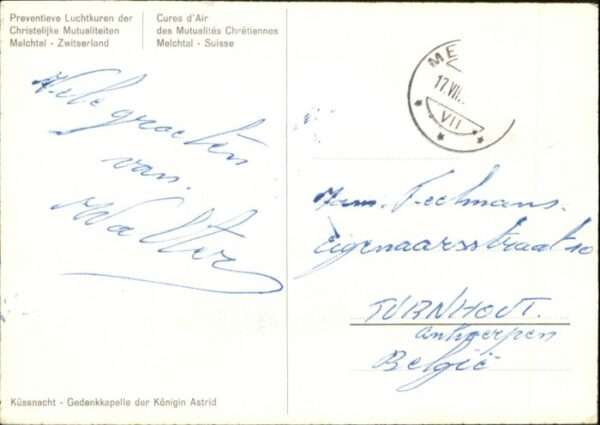 Preventieve Luchtkuren der
Christelijke Mutualiteiten
Melchtal - Zwitserland
Cures d'Air
des Mutualités Chrétiennes
Melchtal - Suisse
ME
17.VII.
VII
Vele groeten
van.
Walter
Fam. Teelmans.
Eigenaarsstraat 10
TURNHOUT.
Antwerpen
België
Küssnacht - Gedenkkapelle der Königin Astrid